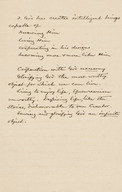 2. God has created intelligent beings
capable of
Knowing Him
Loving Him
Cooperating in His designs
Becoming more and more like Him

Cooperation with God necessary
Glorifying God the most worthy
object for which we can live
Living to enjoy life, Epicureanism
unworthy. Enduring life, like the
Stoics, dishonorable to our Creator.
Loving and glorifying God an infinite
object.